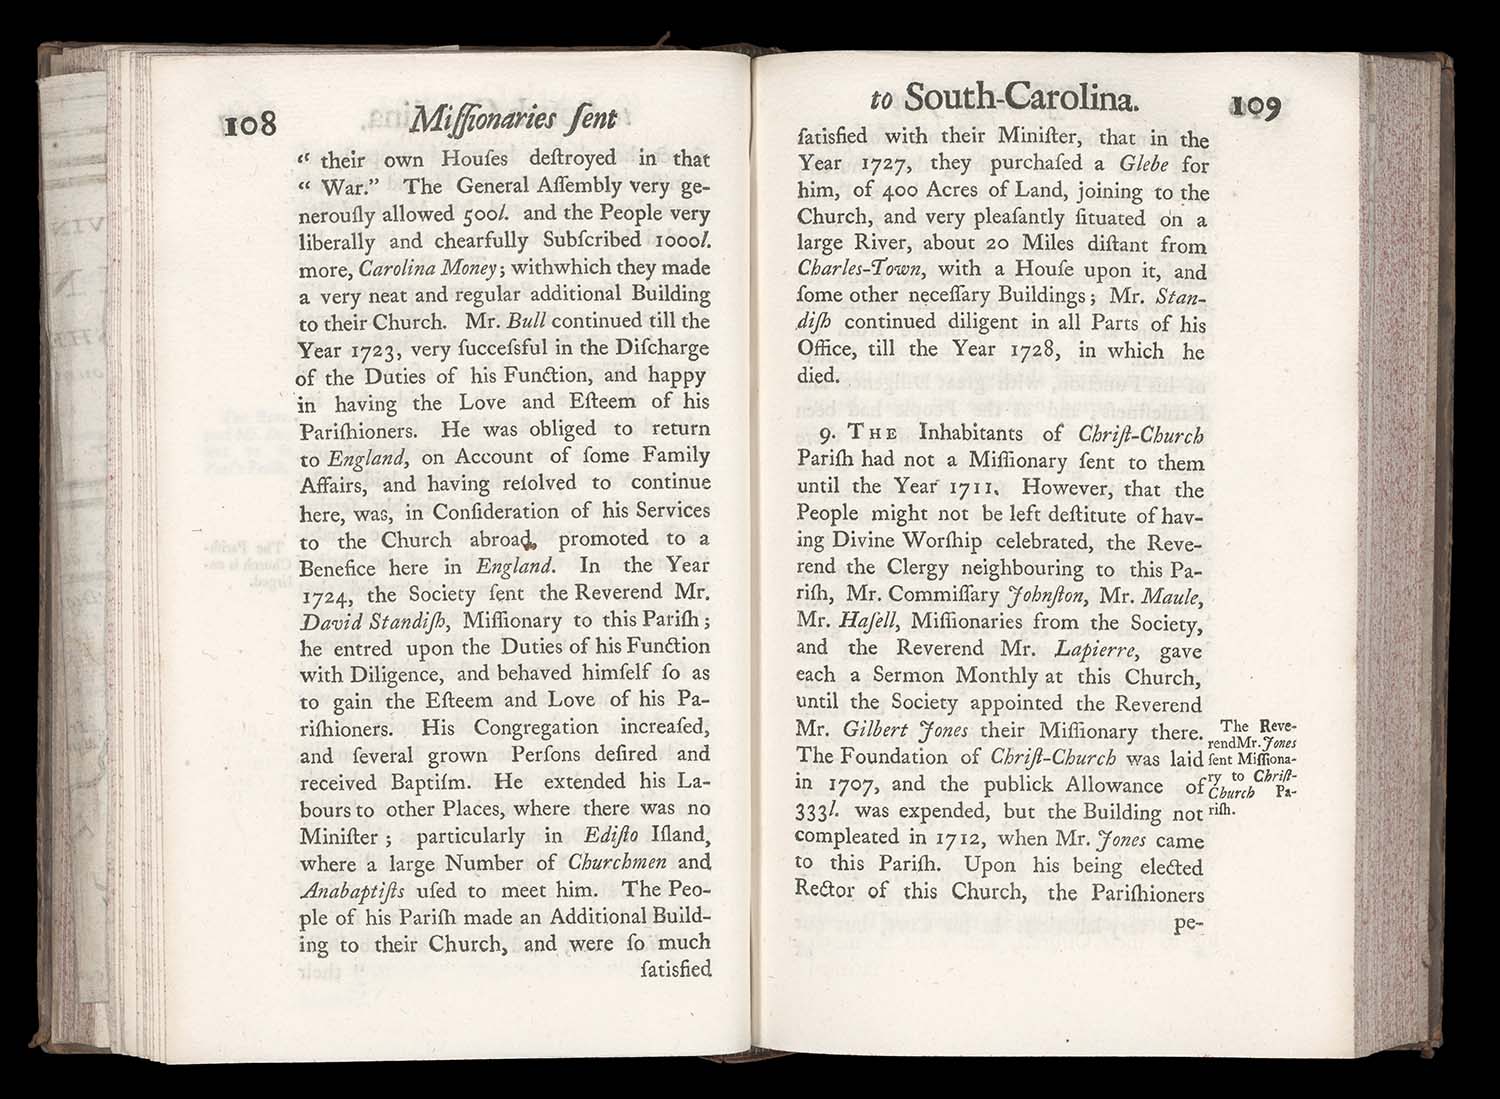 108 Miſſionaries ſent
“ their own Houſes deſtroyed in that
“ War.” The General Aſſembly very ge-
nerouſly allowed 500l. and the People very
liberally and chearfully Subſcribed 1000l.
more, Carolina Money; withwhich they made
a very neat and regular additional Building
to their Church. Mr. Bull continued till the
Year 1723, very ſucceſsful in the Diſcharge
of the Duties of his Function, and happy
in having the Love and Eſteem of his
Pariſhioners. He was obliged to return
to England, on Account of ſome Family
Affairs, and having reſolved to continue
here, was, in Conſideration of his Services
to the Church abroad, promoted to a
Benefice here in England. In the Year
1724, the Society ſent the Reverend Mr.
David Standiſh, Miſſionary to this Pariſh;
he entred upon the Duties of his Function
with Diligence, and behaved himſelf ſo as
to gain the Eſteem and Love of his Pa-
riſhioners. His Congregation increaſed,
and ſeveral grown Perſons deſired and
received Baptiſm. He extended his La-
bours to other Places, where there was no
Miniſter; particularly in Ediſto Iſland,
where a large Number of Churchmen and
Anabaptiſts uſed to meet him. The Peo-
ple of his Pariſh made an Additional Build-
ing to their Church, and were ſo much
ſatisfied
to South-Carolina. 109
ſatisfied with their Miniſter, that in the
Year 1727, they purchaſed a Glebe for
him, of 400 Acres of Land, joining to the
Church, and very pleaſantly ſituated on a
large River, about 20 Miles diſtant from
Charles-Town, with a Houſe upon it, and
ſome other neceſſary Buildings; Mr. Stan-
diſh continued diligent in all Parts of his
Office, till the Year 1728, in which he
died.
9. THE Inhabitants of Chriſt-Church
Pariſh had not a Miſſionary ſent to them
until the Year 1711. However, that the
People might not be left deſtitute of hav-
ing Divine Worſhip celebrated, the Reve-
rend the Clergy neighbouring to this Pa-
riſh, Mr. Commiſſary Johnſton, Mr. Maule,
Mr. Haſell, Miſſionaries from the Society,
and the Reverend Mr. Lapierre, gave
each a Sermon Monthly at this Church,
until the Society appointed the Reverend
Mr. Gilbert Jones their Miſſionary there.
The Foundation of Chriſt-Church was laid
in 1707, and the publick Allowance of
333l. was expended, but the Building not
compleated in 1712, when Mr. Jones came
to this Pariſh. Upon his being elected
Rector of this Church, the Pariſhioners
pe-
The Reve-
rendMr. Jones
ſent Miſſiona-
ry to Chriſt-
Church Pa-
riſh.